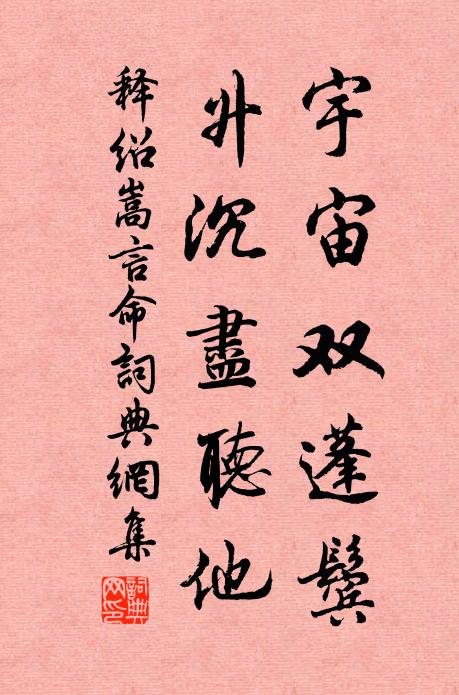 宇宙双蓬鬓
升沉盡聽他
释绍嵩言命詞典網集
詞典网印